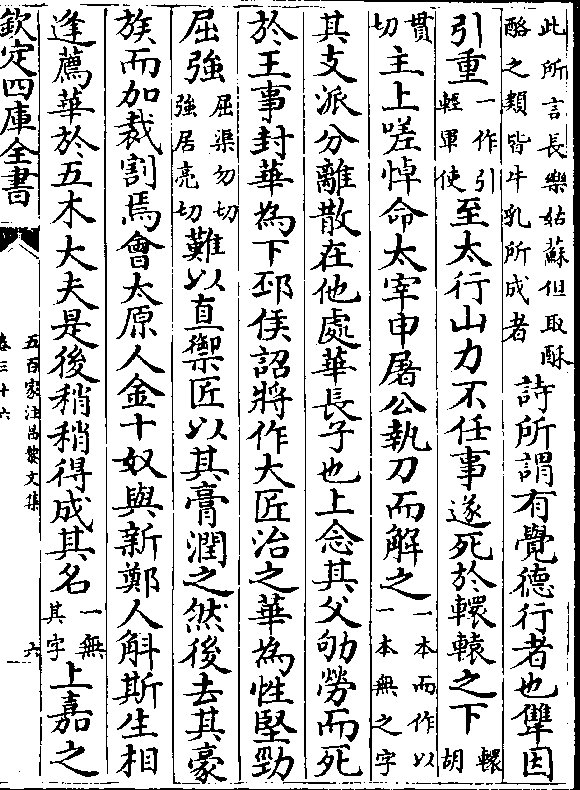 此所言長樂姑蘇但取酥酪之類皆牛乳所成者詩所謂有覺德行者也犨因
引重一作引輕軍使至太行山力不任事遂死於轘轅之下轘胡
貫切主上嗟悼命太宰申屠公執刀而解之一本而作以一本無之字
其支派分離散在他處華長子也上念其父劬勞而死
於王事封華為下邳侯詔將作大匠治之華為性堅勁
屈強屈渠勿切強居亮切難以直禦匠以其膏潤之然後去其豪
族而加裁割焉會太原人金十奴與新鄭人斛斯生相
逢薦華於五木大夫是後稍稍得成其名一無其字上嘉之
欽定四庫全書
五百家注昌黎文集
卷三十六
六